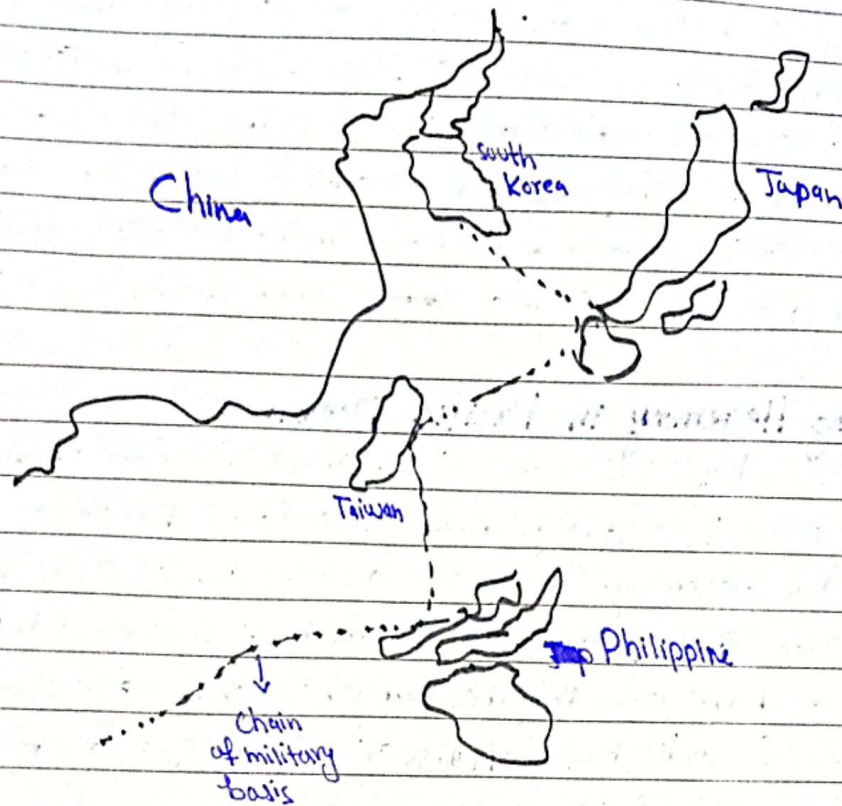 South
Korea
China
Japan
Taiwan
Philippine
Chain
of military
basis